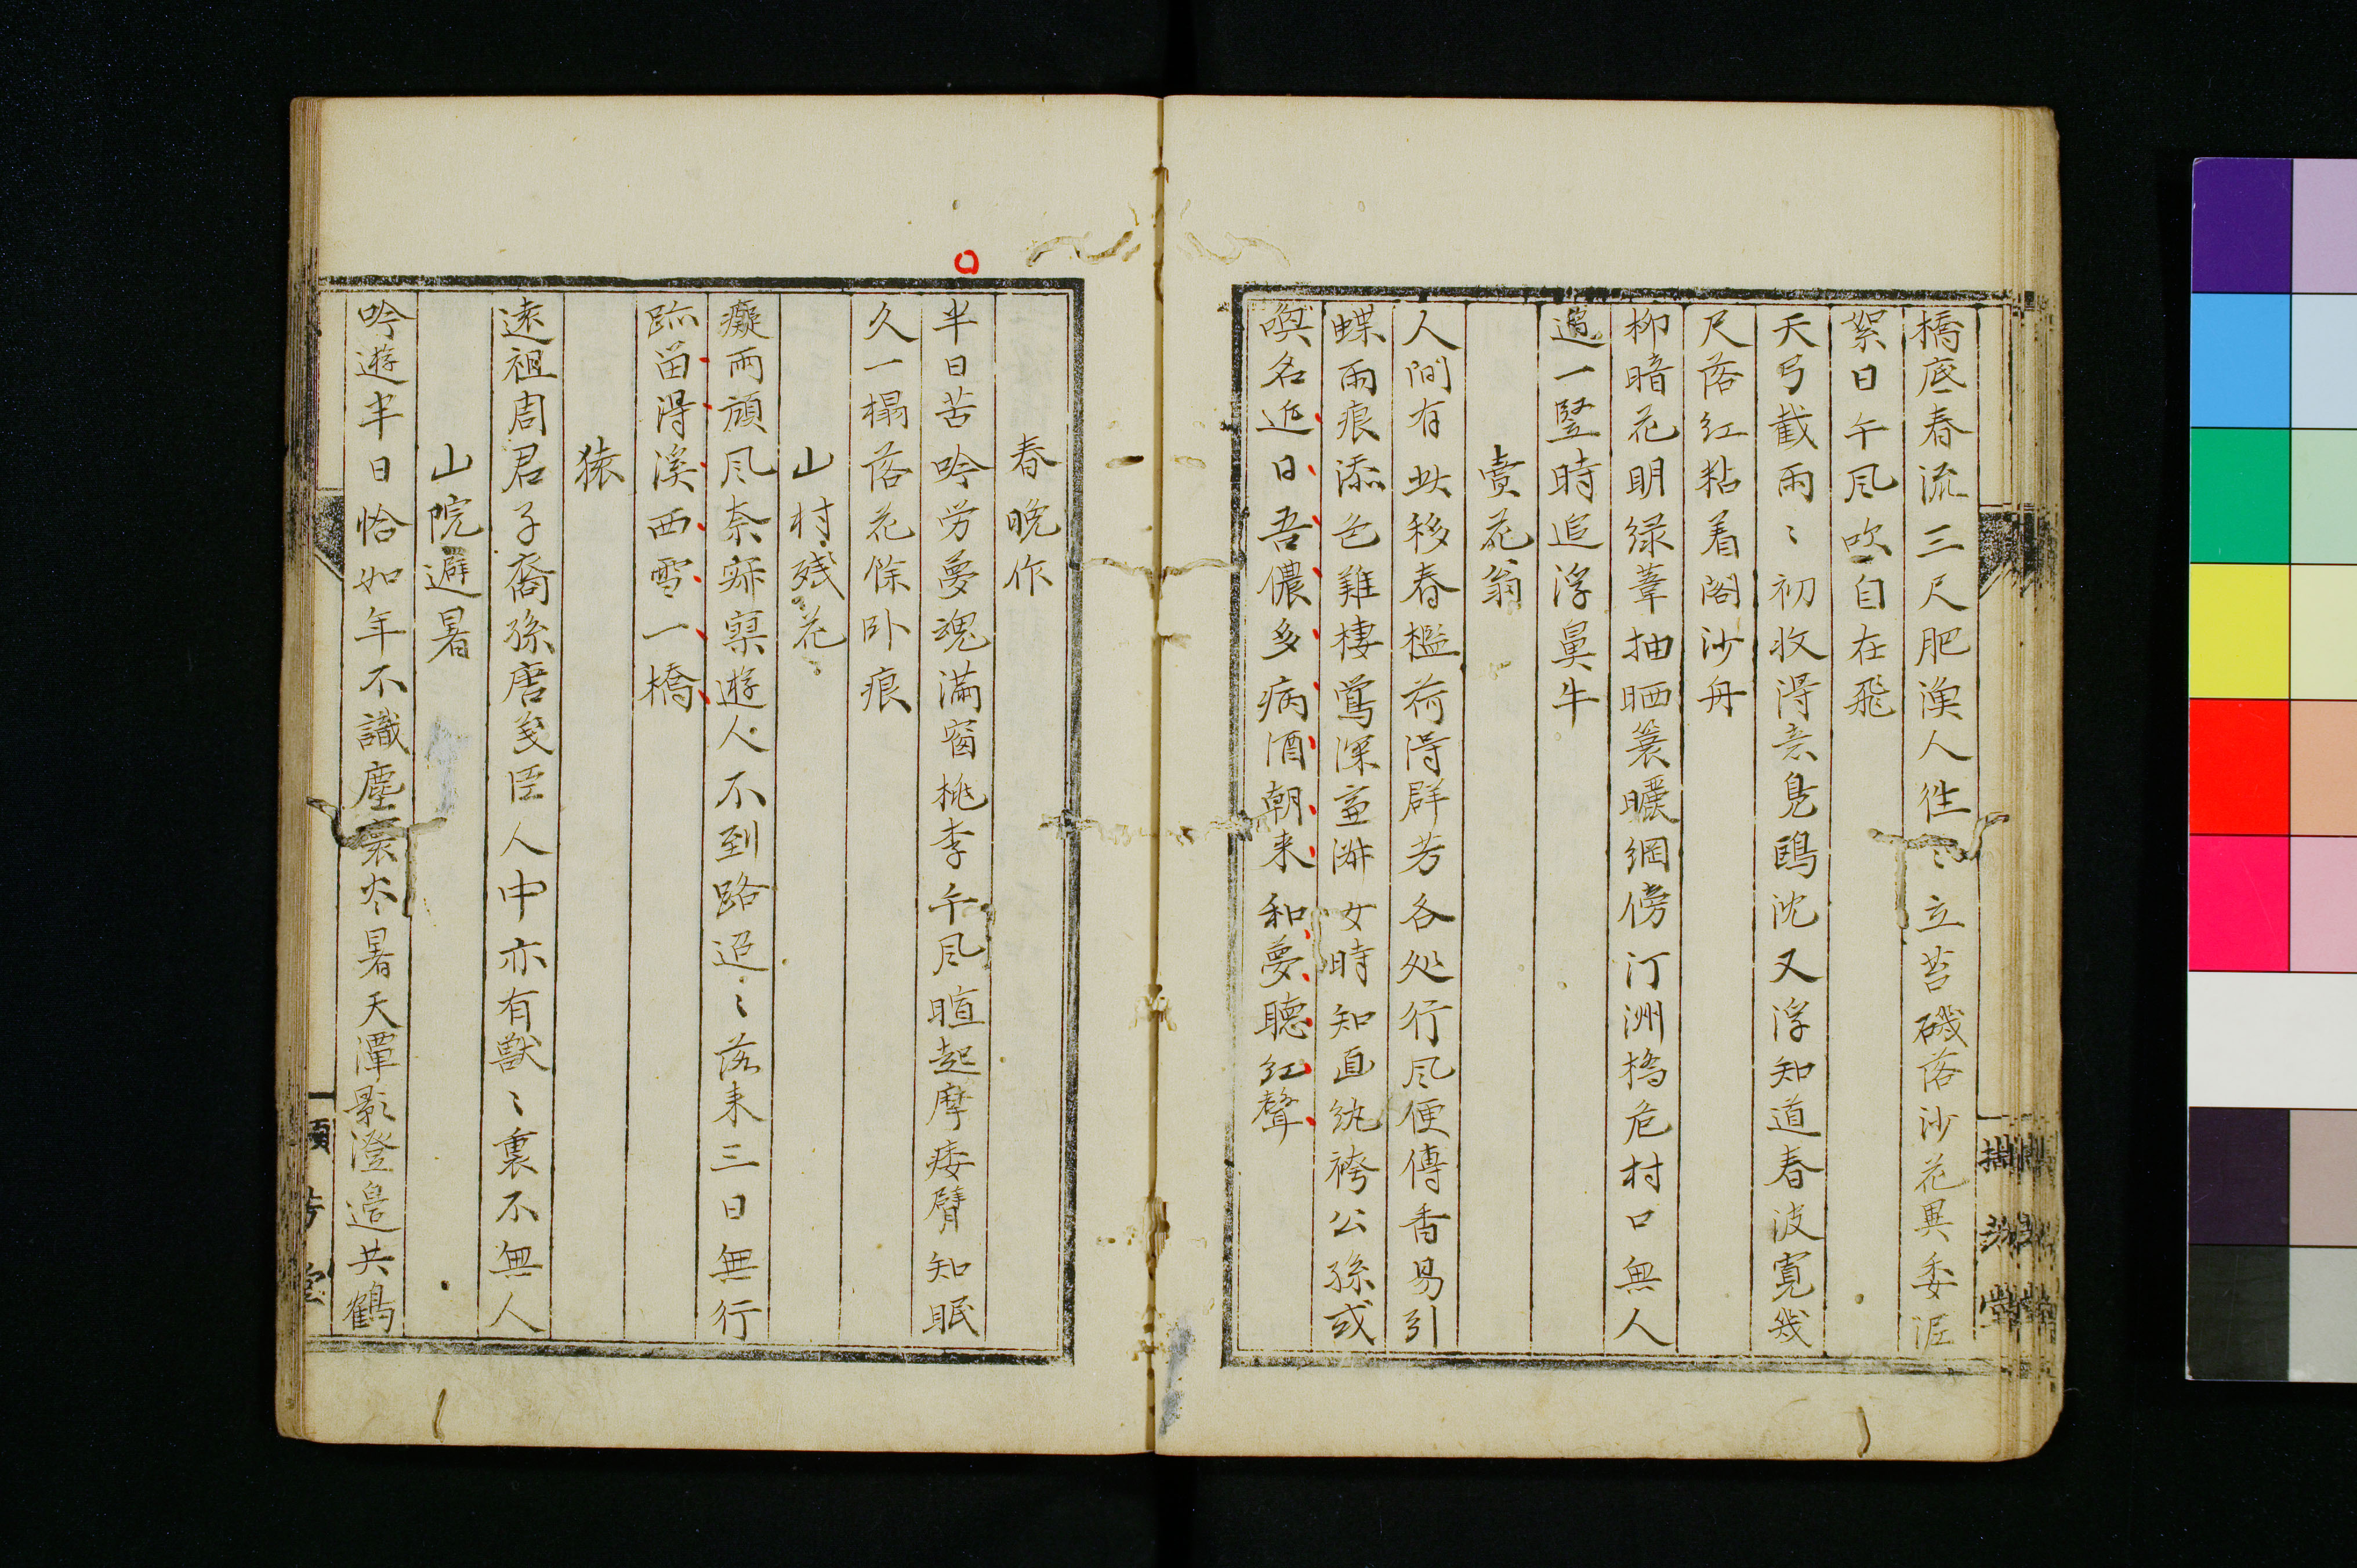 橋底春流三尺肥漁人徃〻立苔磯落沙花異委涯
絮日午風吹自在飛
天弓截雨〻初收得意鳧鷗沈又浮知道春波寛幾
尺落紅粘着閣沙舟
柳暗花明緑葦抽晒簑曬網傍汀洲橋危村口無人
過一竪時追浮鼻牛
賣花翁
人間有此移春檻荷得群芳各処行風便傳香易引
蝶雨痕添色難棲鶯深 女時知直紈袴公孫或
喚名近日吾儂多病酒朝来和夢聴紅聲
春晩作
半日苦吟労夢魂満窗桃李午風暄起摩痿臂知眠
久一榻落花餘臥痕
山村残花
癡雨頑風奈寂寞遊人不到路迢〻落来三日無行
跡留得溪西雪一橋
猿
遠祖周君子裔孫唐叟臣人中亦有獣〻裏不無人
山院避暑
吟遊半日恰如年不識塵寰炎暑天潭影澄邉共鶴